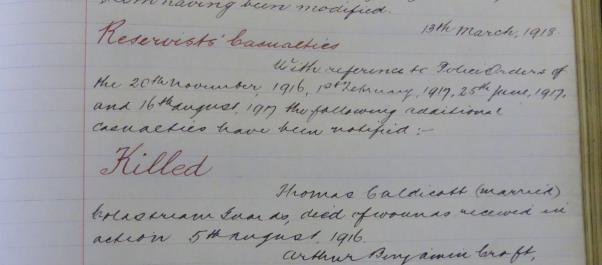 from having been modified.
13th March, 1918.
Reservists' Casualties
With reference to Police Orders of
the 20th November, 1916, 1st February, 1917, 25th June, 1917,
and 16th August, 1917 the following additional
casualties have been notified :-
Killed
Thomas Caldicott (married)
Coldstream Guards, died of wounds received in
action 5th August, 1916.
Arthur Benjamin Croft,